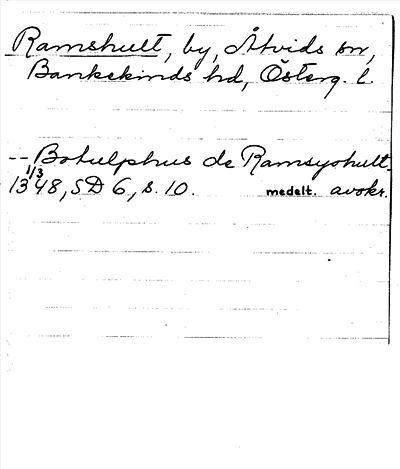 Ramshult, by, Åtvids sn,
Bankekinds hd, Österg. l.
-- Botulphus de Ramsyohult
1/3 1348, SD 6, s. 10. medelt. avskr.